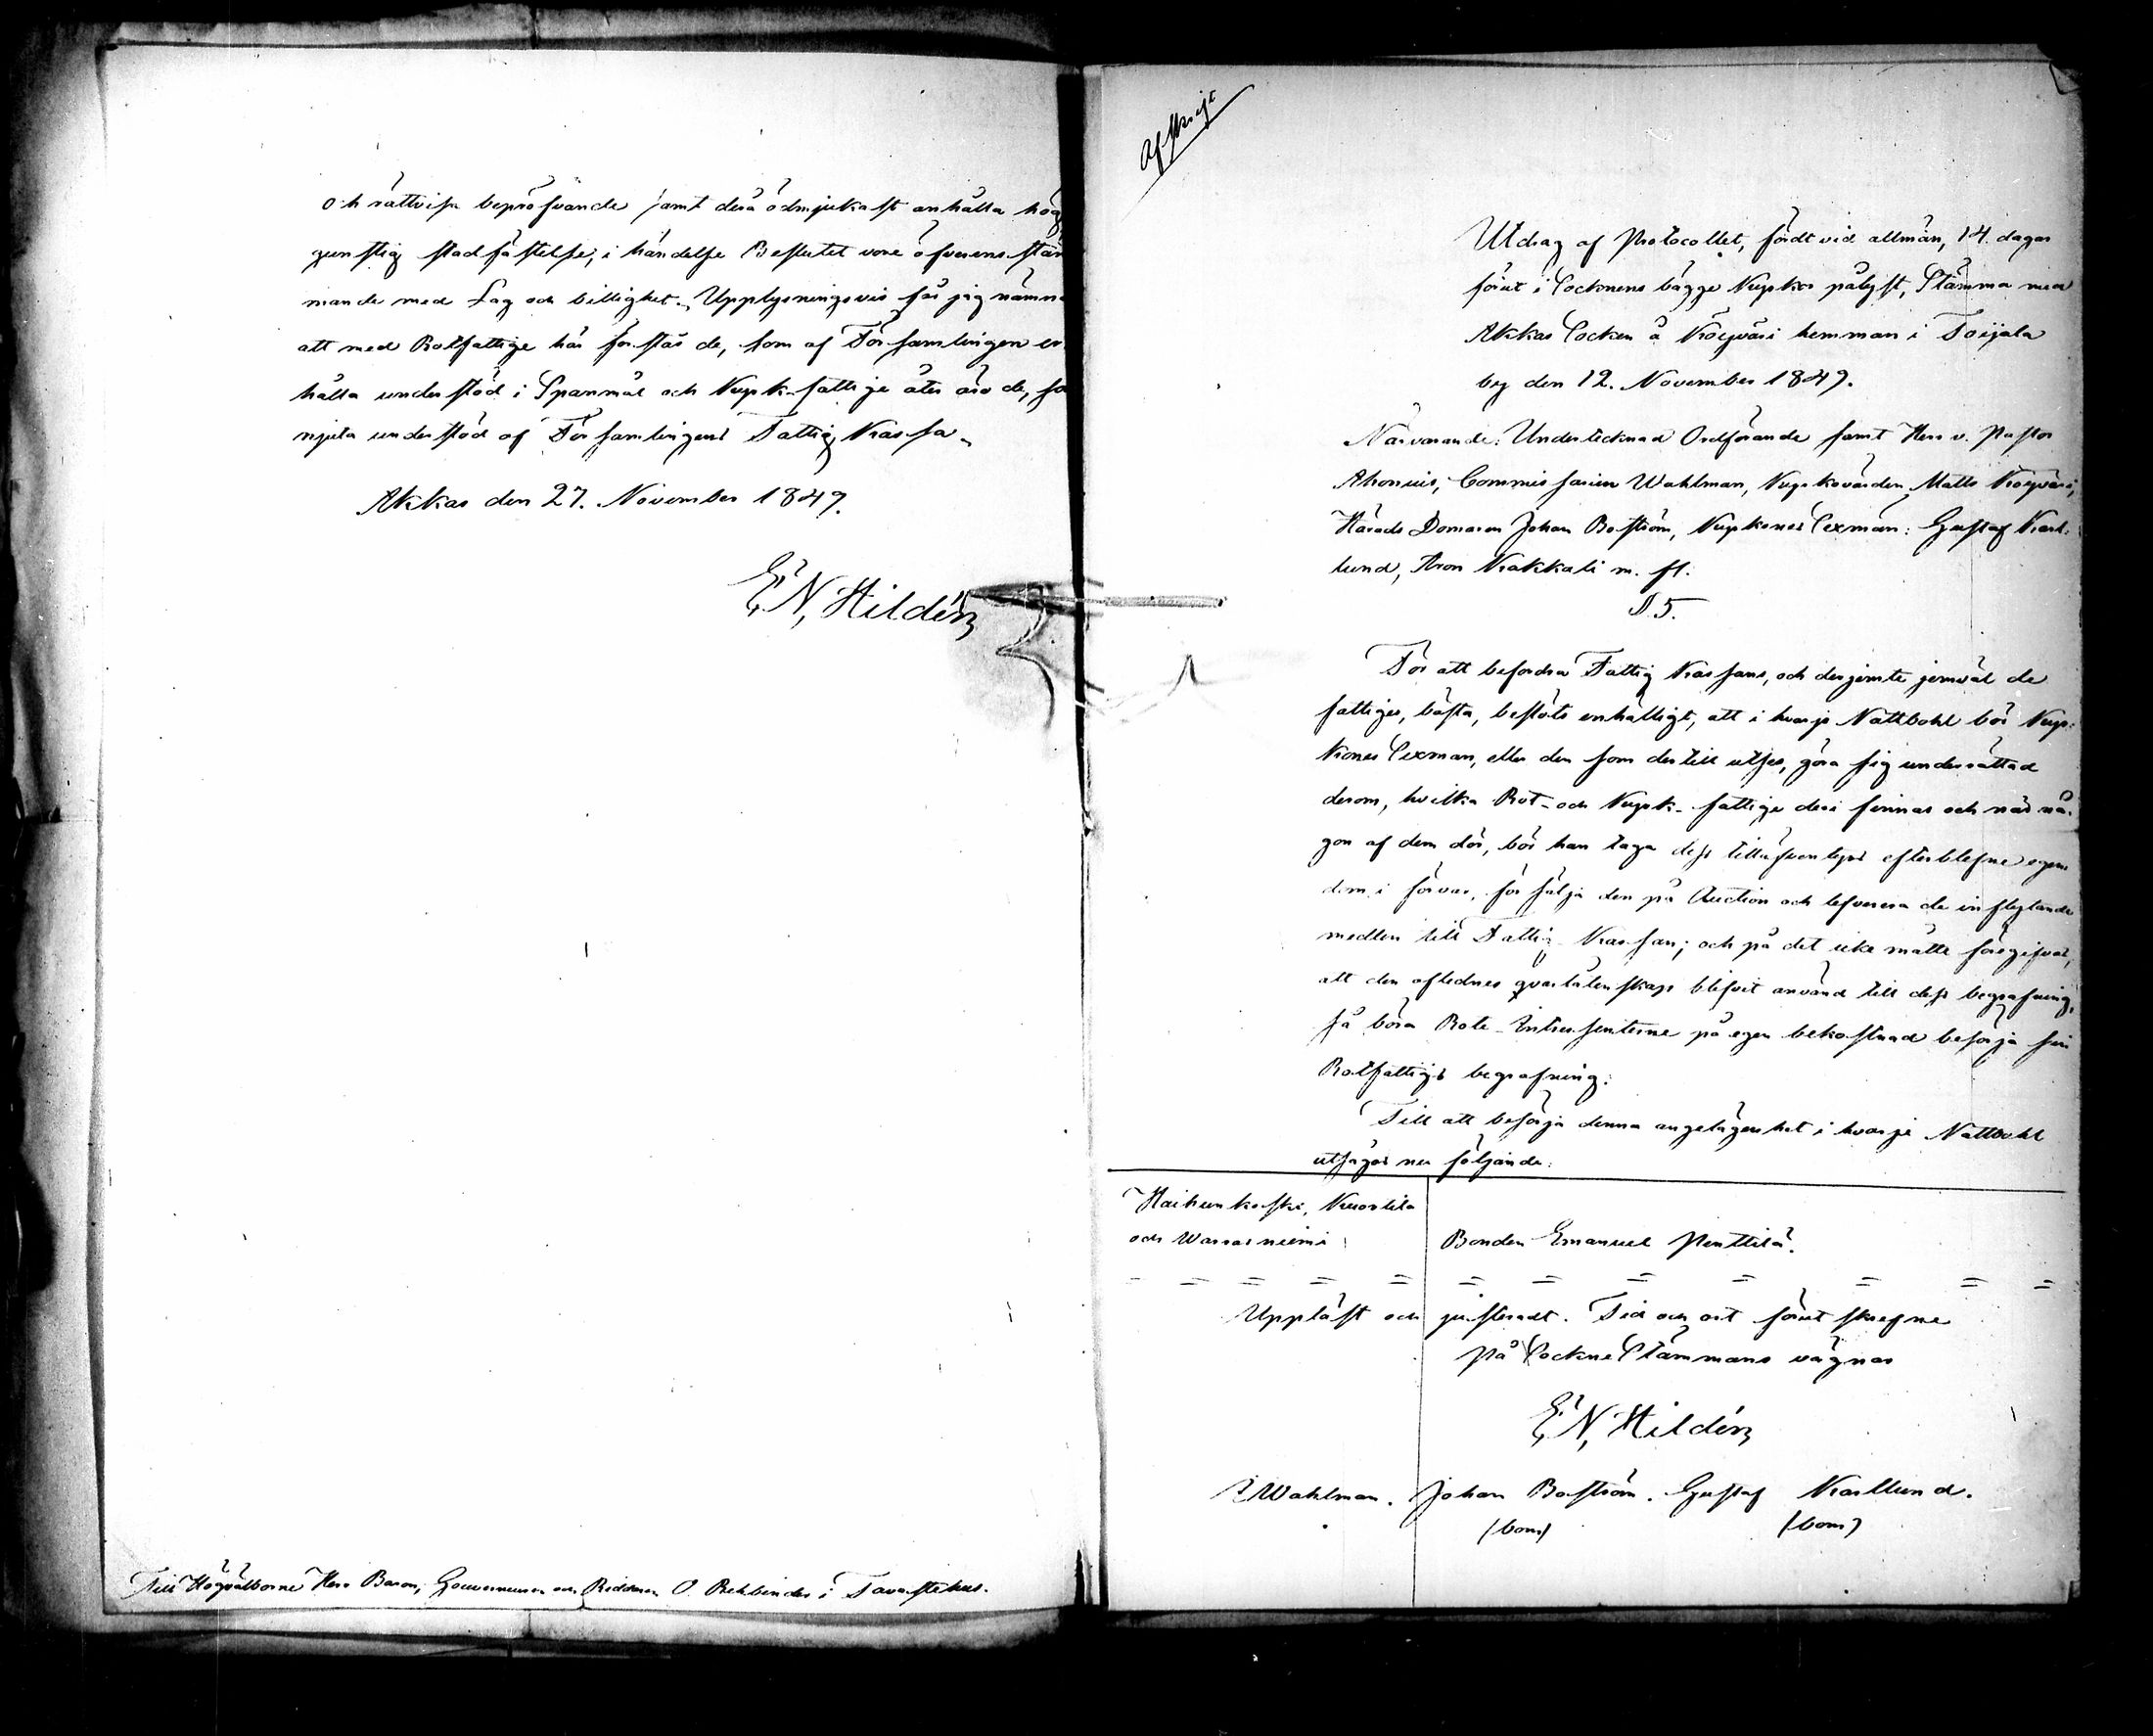 och rättvisa bepröfvande samt derå ödmjukast anhålla hög
gunstig stadfästelse, i händelse Beslutet vore öfverensstäm
mande med Lag och billighet. Upplysningsvis får jag nämna
att med Rotfattige här förstås de, som af Församlingen er
hålla understöd i Spanmål och Kyrk-fattige åter äro de, so
njuta understöd af Församlingens Fattig Kassa.
Akkas den 27. November 1849.
E, N, Hildén
Till Högvälborne Herr Baron, Gouverneuren och Riddaren O. Rehbinder i Tavastehus.
Afskrift
Utdrag af Protocollet, fördt vid allmän, 14. dagar
förut i Socknens bägge Kyrkor pålyst, Stämma med
Akkas Socken å Köyväri hemman i Toijala
by den 12. November 1849.
Närvarande: Undertecknad Ordförande samt Herr v. Pastor
Ahonius, Commissarien Wahlman, Kyrkovärden Matts Köyväri,
Härads Domaren Johan Boström, Kyrkones Sexmän: Gustaf Karl-
lund, Aron Kakkali m. fl.
§ 5.
För att befordra Fattig Kassans, och derjemte jemväl de
fattiges, bästa, beslöts enhälligt, att i hvarje Nattbohl bör Kyr-
kones Sexman, eller den som dertill utses, göra sig underrättad
derom, hvilka Rot- och Kyrk-fattige deri finnas och när nå-
gon af dem dör, bör han taga dess tilläfventyrs efterblefne egen
dom i förvar, försälja den på Auction och lefverera de inflytande
medlen till Fattig-Kassan; och på det icke måtte föregifvas,
att den aflednes qvarlåtenskap blifvit använd till dess begrafning,
så böra Rote-Intressenterne på egen bekostnad besörja sin
Rotfattigs begrafning.
Till att besörja denna angelägenhet i hvarje Nattbohl
utsågos nu följande:
Haihunkoski, Kuortila
och Warrasniemi Bonden Emanuel Penttilä.
Uppläst och justeradt. Tid och ort förutskrefne
På SockneStämmans vägnar
E, N, Hildén
Wahlman. Johan Boström. Gustaf Karllund.
(bom) (bom)